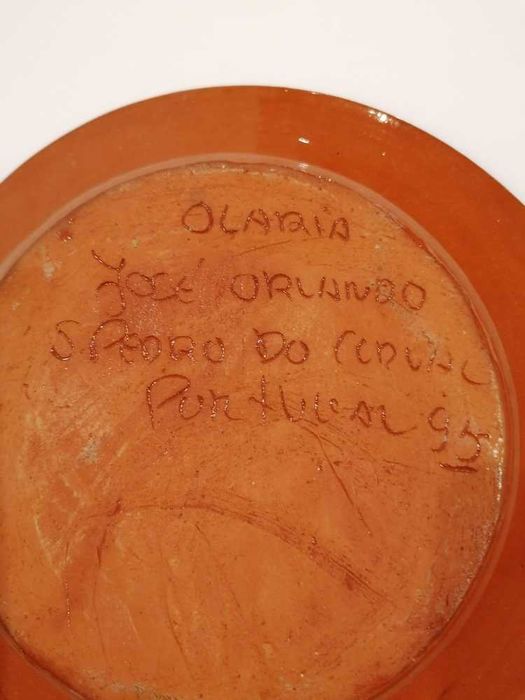 OLARIA
JOSÉ ORLANDO
S. PEDRO DO CORVAL
PORTUGAL 95